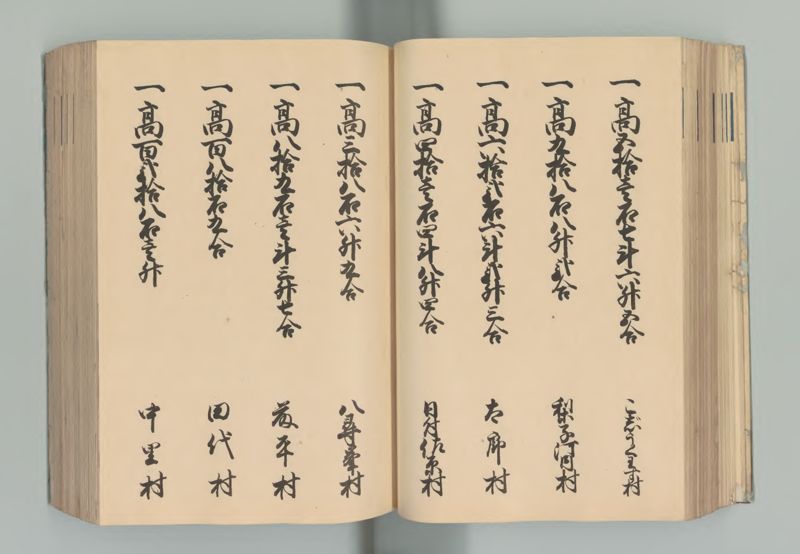 一高五拾壱石七斗六升五合 村
一高九拾八石八升弐合 梨子河内村
一高六拾弐石六斗弐升三合 太郎村
一高四拾壱石四斗八升四合 村
一高三拾八石六升九合 八尋峯村
一高八拾九石壱斗三升七合 藤平村
一高百八拾石九合 田代村
一高百弐拾八石壱升 中里村